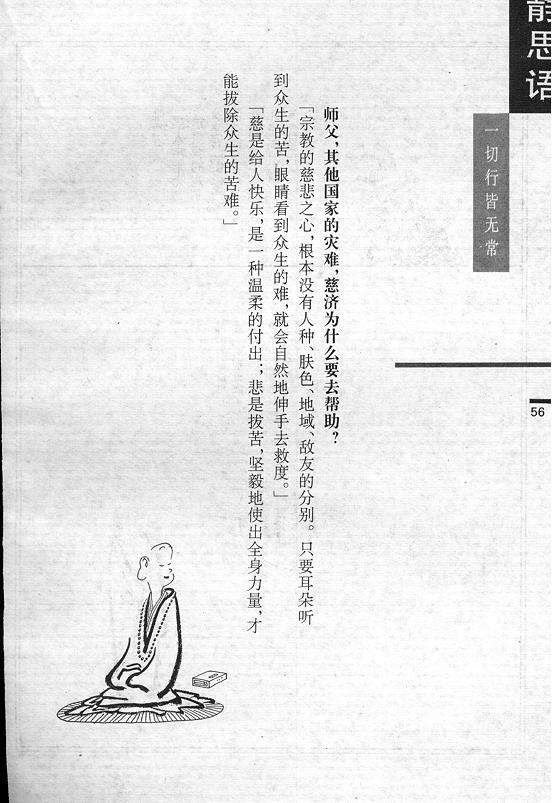 静思语
一切行皆无常
56
师父，其他国家的灾难，慈济为什么要去帮助？
「宗教的慈悲之心，根本没有人种、肤色、地域、敌友的分别。只要耳朵听
到众生的苦，眼睛看到众生的难，就会自然地伸手去救度。」
「慈是给人快乐，是一种温柔的付出；悲是拔苦，坚毅地使出全身力量，才
能拔除众生的苦难。」